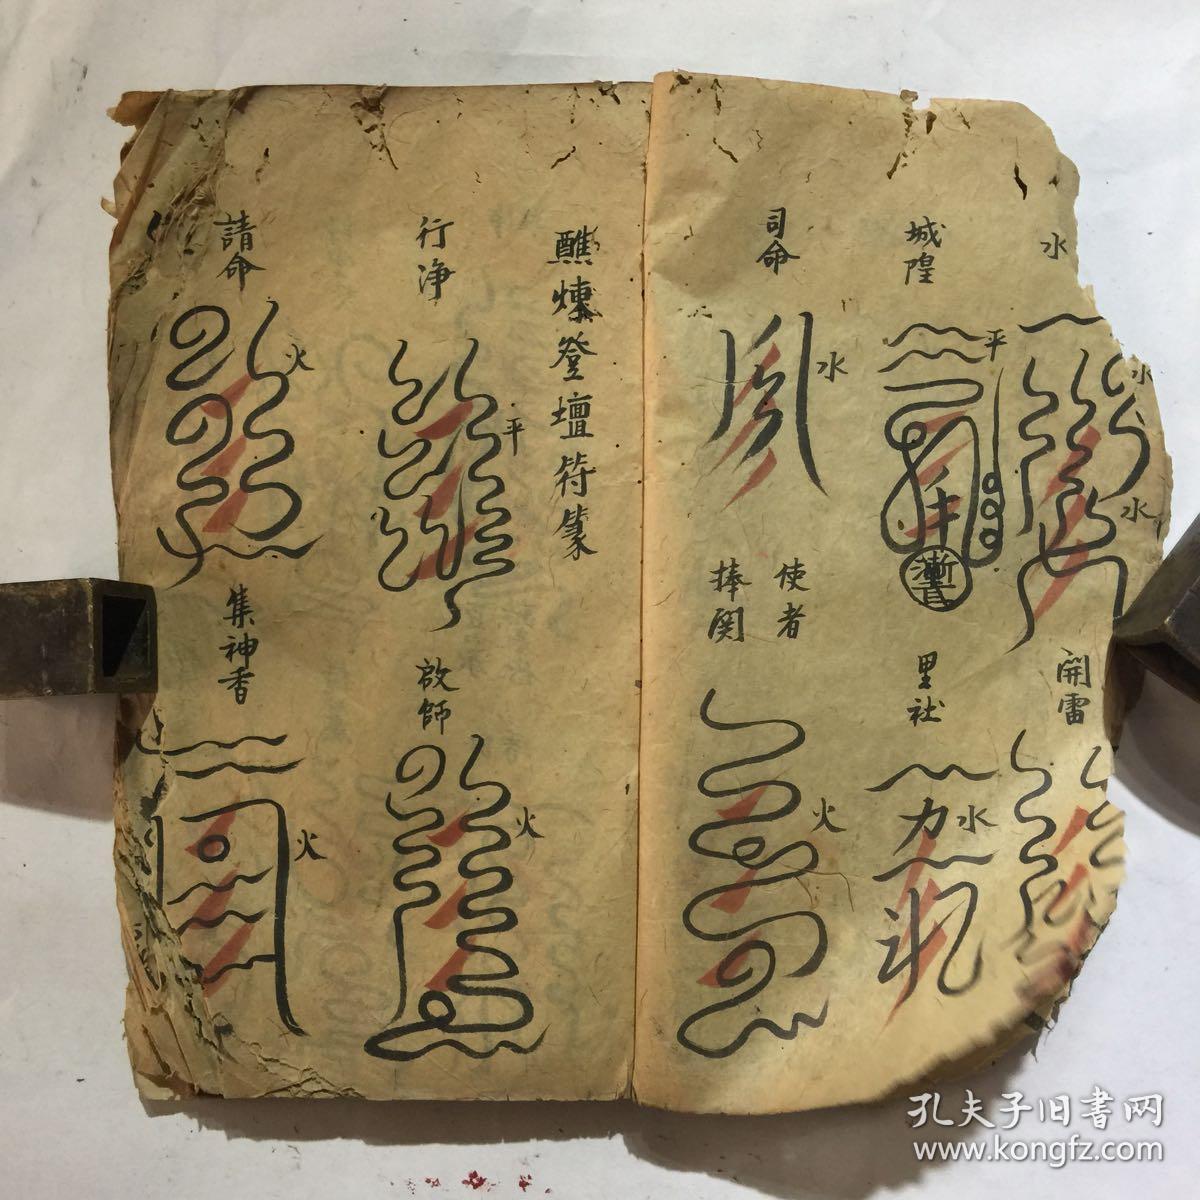 水
水
水
開雷
城隍
平
里社
力
水
司命
水
使者
捧関
火
醮煉登壇符篆
行浄
平
啟師
火
請命
火
集神香
火
孔夫子旧書网
www.kongfz.com